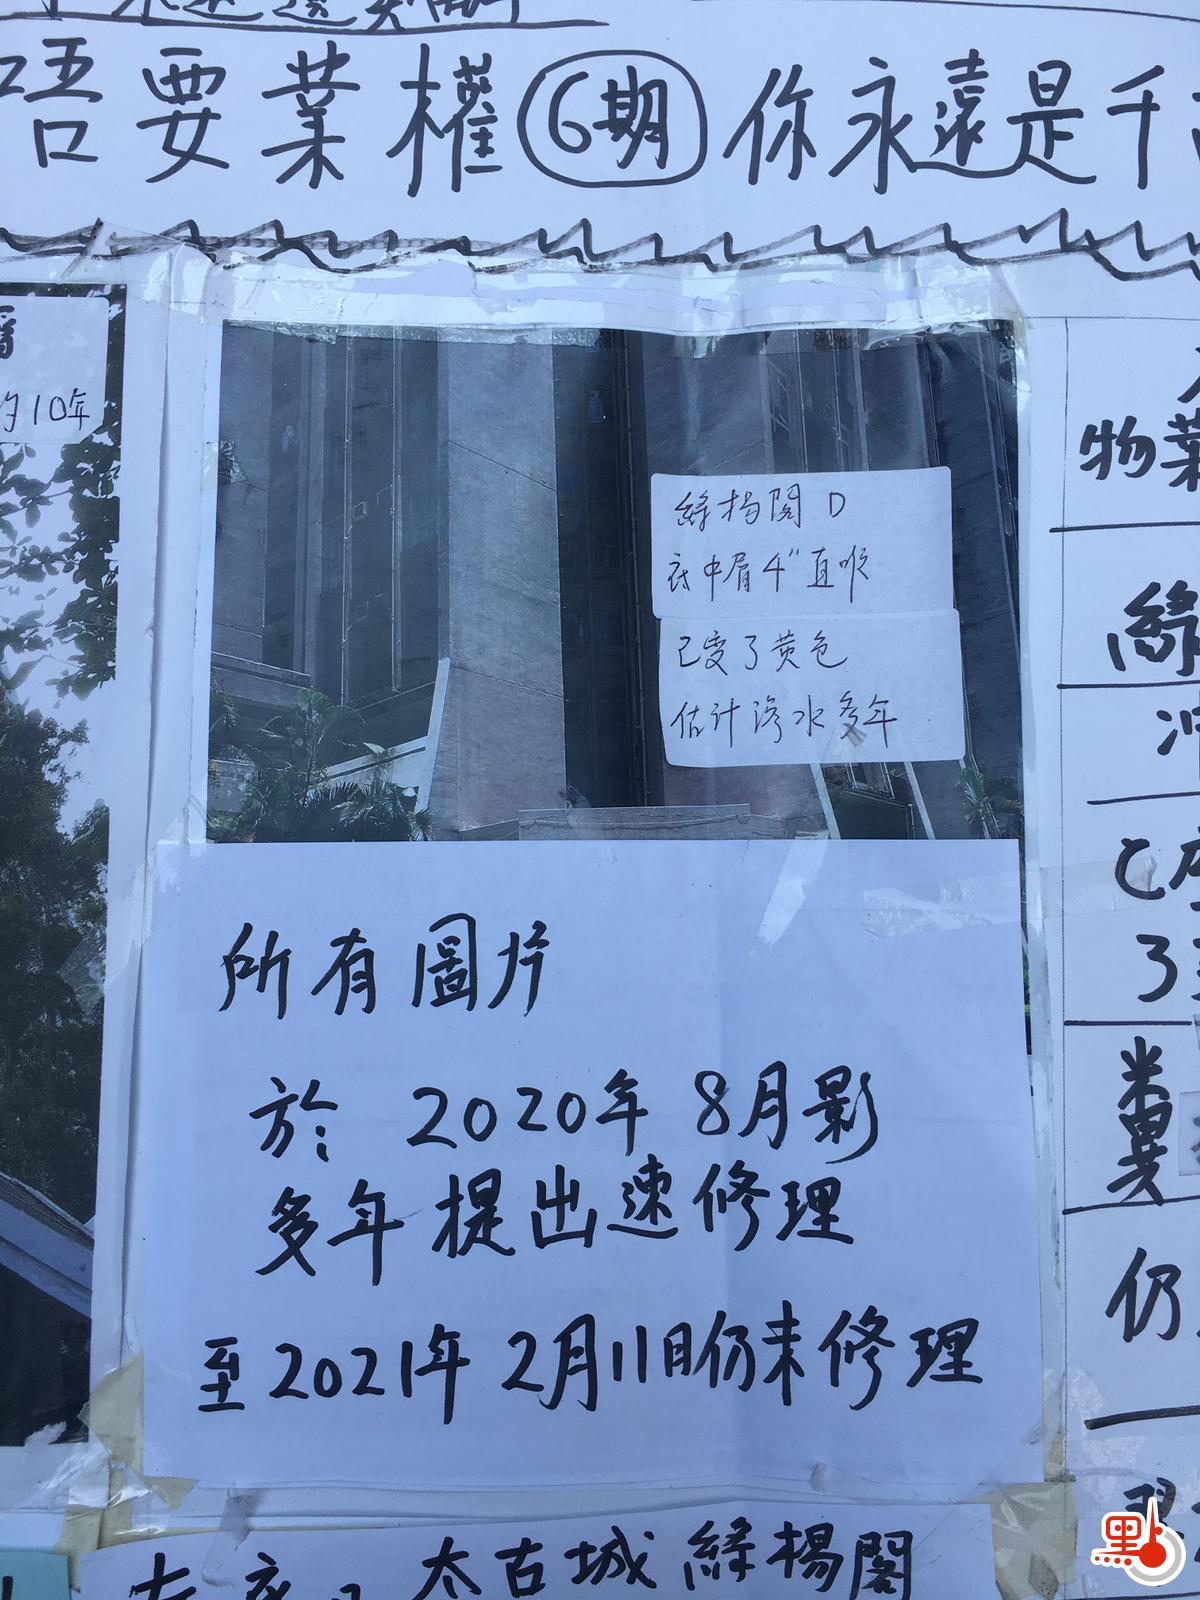 唔要業權6期你永遠是千
約10年
綠楊閣 D
衣中眉4"直喉
已变了黄色
估计滲水多年
物業
所有圖片
於: 2020年 8月影
多年提出速修理
至2021年 2月11日仍未修理
糞
仍
太古城 綠楊閣
點